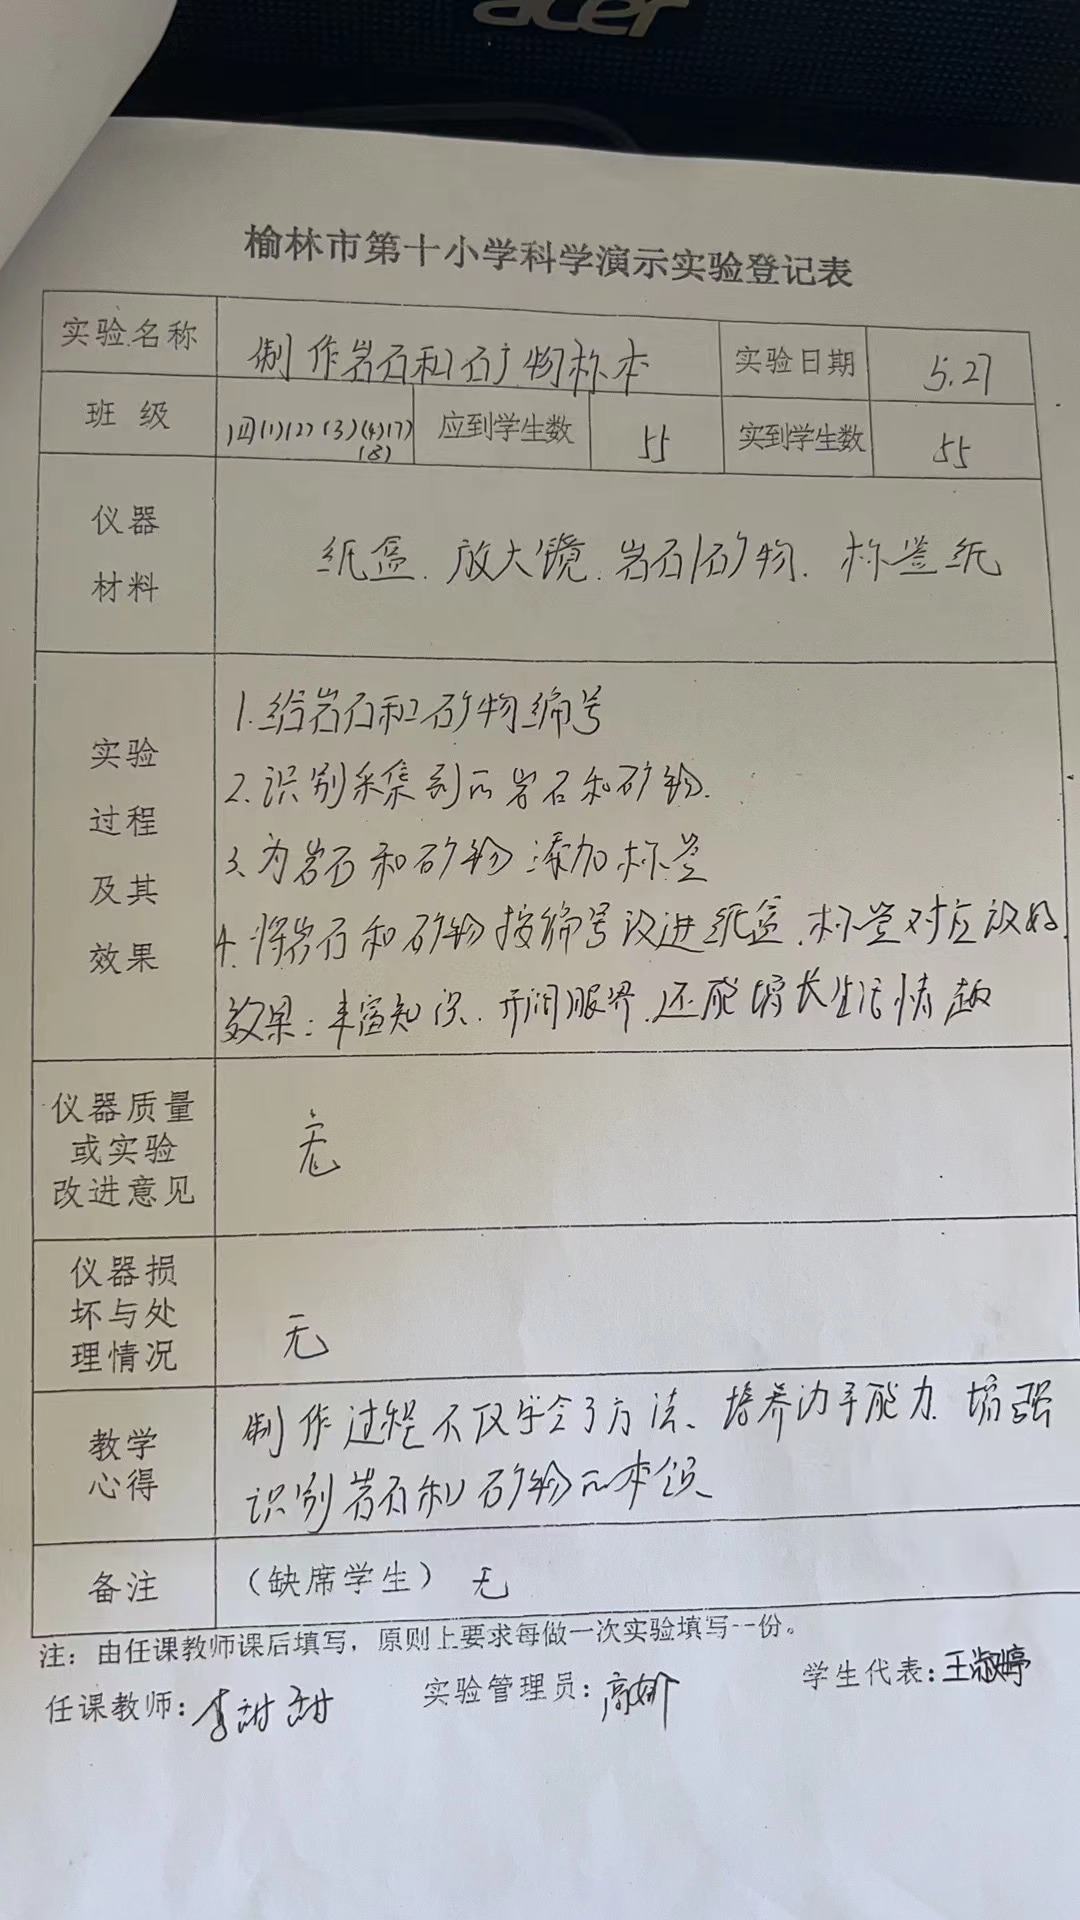 acer
榆林市第十小学科学演示实验登记表
实验名称 制作岩石和石矿物标本 实验日期 5.27
班 级 四(1)(2)(3)(4)(7)(8) 应到学生数 55 实到学生数 55
仪器材料 纸盒、放大镜、岩石/石矿物、标签纸
实验过程及其效果
1.给岩石和矿物编号
2.识别采集到的岩石和矿物.
3、为岩石和矿物添加标签
4.将岩石和矿物按编号放进纸盒、标签对应放好.
效果：丰富知识、开阔眼界、还能增长生活情趣
仪器质量或实验改进意见 无
仪器损坏与处理情况 无
教学心得 制作过程不仅学会了方法、培养动手能力、增强
识别岩石和矿物的本领
备注 (缺席学生) 无
注：由任课教师课后填写，原则上要求每做一次实验填写一份。
任课教师：李甜甜 实验管理员：高 学生代表：王淑婷